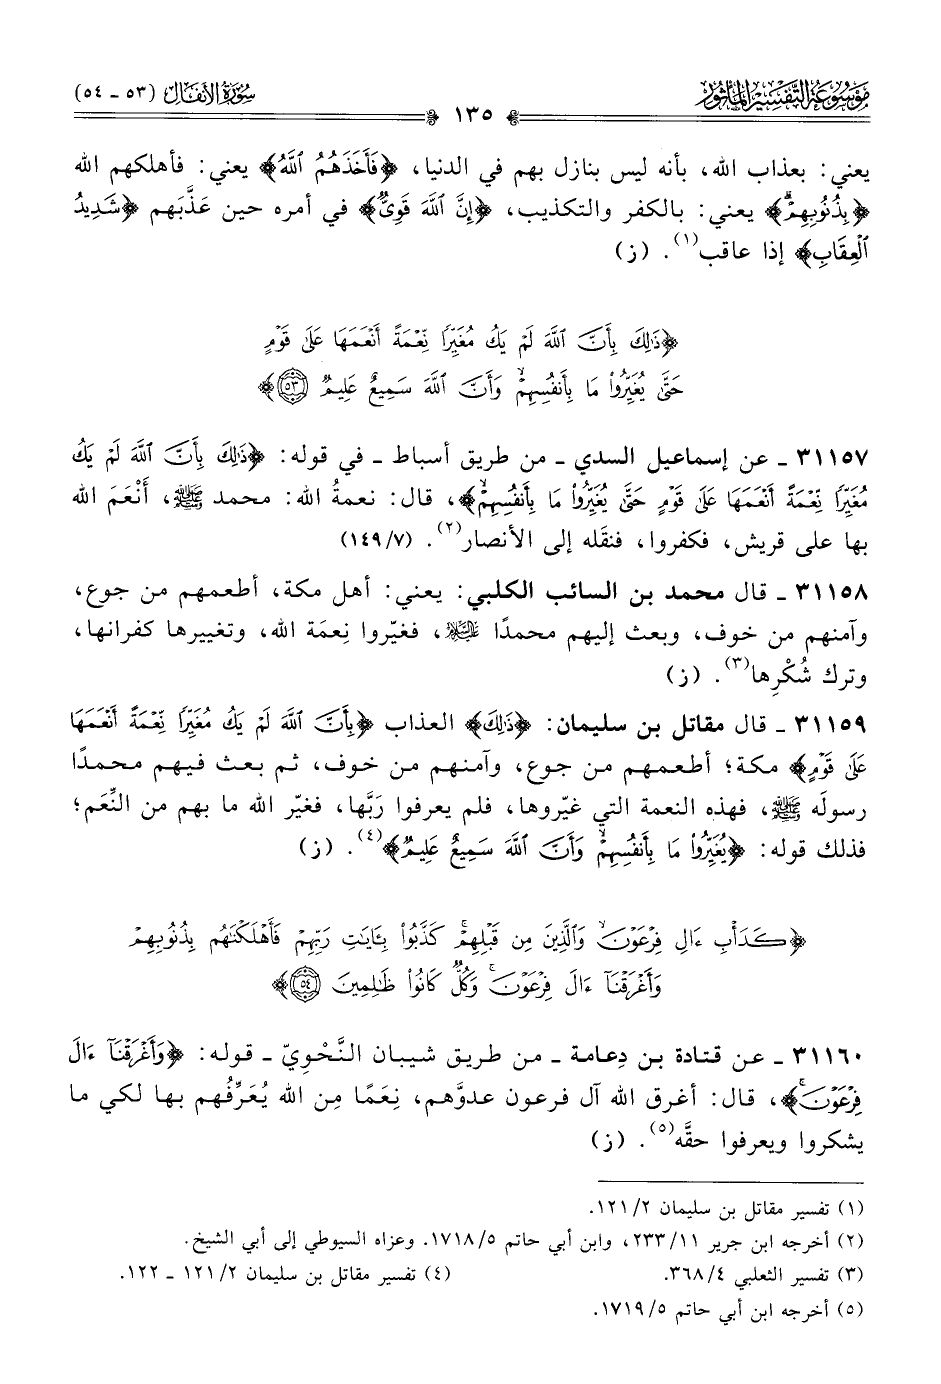 مَوْسُوعَة التَّفْسِير المَأْثُور
سُورَةُ الأَنفَال (٥٣ - ٥٤)
١٣٥
يعني: بعذاب الله، بأنه ليس بنازل بهم في الدنيا، ﴿فَأَخَذَهُمُ ٱللَّهُ﴾ يعني: فأهلكهم الله
﴿بِذُنُوبِهِمۡۗ﴾ يعني: بالكفر والتكذيب، ﴿إِنَّ ٱللَّهَ قَوِيٌّ﴾ في أمره حين عَذَّبَهم ﴿شَدِيدُ
ٱلۡعِقَابِ﴾ إذا عاقب(١). (ز)
﴿ذَٰلِكَ بِأَنَّ ٱللَّهَ لَمۡ يَكُ مُغَيِّرٗا نِّعۡمَةً أَنۡعَمَهَا عَلَىٰ قَوۡمٍ
حَتَّىٰ يُغَيِّرُواْ مَا بِأَنفُسِهِمۡۙ وَأَنَّ ٱللَّهَ سَمِيعٌ عَلِيمٞ ٥٣﴾
٣١١٥٧ ـ عن إسماعيل السدي ـ من طريق أسباط ـ في قوله: ﴿ذَٰلِكَ بِأَنَّ ٱللَّهَ لَمۡ يَكُ
مُغَيِّرٗا نِّعۡمَةً أَنۡعَمَهَا عَلَىٰ قَوۡمٍ حَتَّىٰ يُغَيِّرُواْ مَا بِأَنفُسِهِمۡۙ﴾، قال: نعمةُ الله: محمد ﷺ، أَنْعَمَ الله
بها على قريش، فكفروا، فنقَله إلى الأنصار(٢). (١٤٩/٧)
٣١١٥٨ ـ قال محمد بن السائب الكلبي: يعني: أهل مكة، أطعمهم من جوع،
وآمنهم من خوف، وبعث إليهم محمدًا عليه السلام، فغيّروا نِعمَة الله، وتغييرها كفرانها،
وترك شُكْرِها(٣). (ز)
٣١١٥٩ ـ قال مقاتل بن سليمان: ﴿ذَٰلِكَ﴾ العذاب ﴿بِأَنَّ ٱللَّهَ لَمۡ يَكُ مُغَيِّرٗا نِّعۡمَةً أَنۡعَمَهَا
عَلَىٰ قَوۡمٍ﴾ مكة؛ أطعمهم من جوع، وآمنهم من خوف، ثم بعث فيهم محمدًا
رسولَه ﷺ، فهذه النعمة التي غيّروها، فلم يعرفوا رَبَّها، فغيّر الله ما بهم من النِّعَم؛
فذلك قوله: ﴿يُغَيِّرُواْ مَا بِأَنفُسِهِمۡۙ وَأَنَّ ٱللَّهَ سَمِيعٌ عَلِيمٞ﴾(٤). (ز)
﴿كَدَأۡبِ ءَالِ فِرۡعَوۡنَۙ وَٱلَّذِينَ مِن قَبۡلِهِمۡۚ كَذَّبُواْ بِـَٔايَٰتِ رَبِّهِمۡ فَأَهۡلَكۡنَٰهُم بِذُنُوبِهِمۡ
وَأَغۡرَقۡنَآ ءَالَ فِرۡعَوۡنَۚ وَكُلّٞ كَانُواْ ظَٰلِمِينَ ٥٤﴾
٣١١٦٠ ـ عن قتادة بن دِعامة ـ من طريق شيبان النَّحْوِيّ ـ قوله: ﴿وَأَغۡرَقۡنَآ ءَالَ
فِرۡعَوۡنَۚ﴾، قال: أغرق الله آل فرعون عدوَّهم، نِعَمًا مِن الله يُعَرِّفُهم بها لكي ما
يشكروا ويعرفوا حقَّه(٥). (ز)
(١) تفسير مقاتل بن سليمان ١٢١/٢.
(٢) أخرجه ابن جرير ٢٣٣/١١، وابن أبي حاتم ١٧١٨/٥. وعزاه السيوطي إلى أبي الشيخ.
(٣) تفسير الثعلبي ٣٦٨/٤. (٤) تفسير مقاتل بن سليمان ١٢١/٢ ـ ١٢٢.
(٥) أخرجه ابن أبي حاتم ١٧١٩/٥.